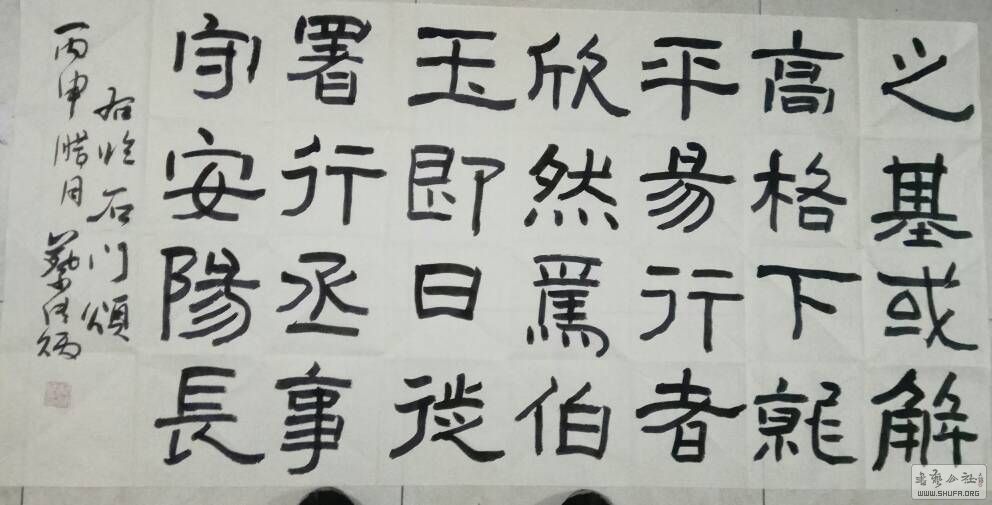 之基或解
高格下就
平易行者
欣然焉伯
玉即日徙
署行丞事
守安陽長
右臨石門頌
丙申腊月
書藝公社
WWW.SHUFA.ORG